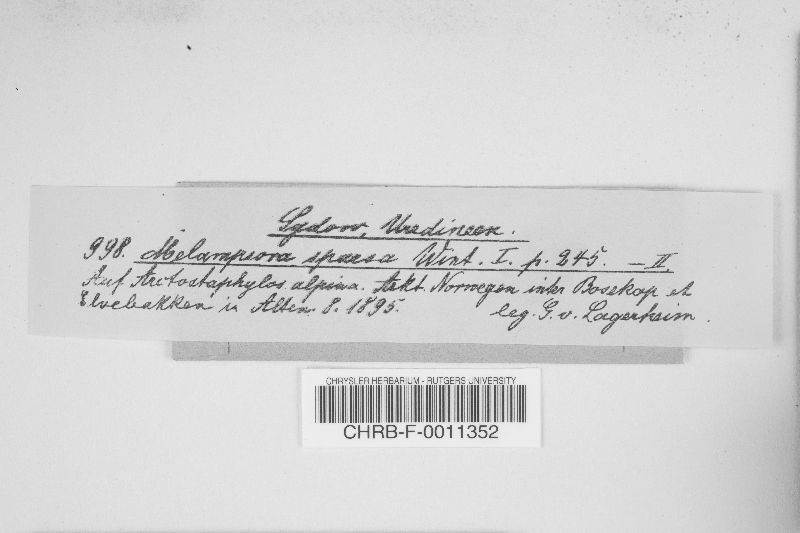 Sydow, Uredineen.
998. Melampsora sparsa Wint. I. p. 245. — II.
Auf Arctostaphylos alpina. Arkt. Norwegen inter Bosekop et
Elvebakken in Alten. 8. 1895. leg. G. v. Lagerheim.
CHRYSLER HERBARIUM - RUTGERS UNIVERSITY
CHRB-F-0011352